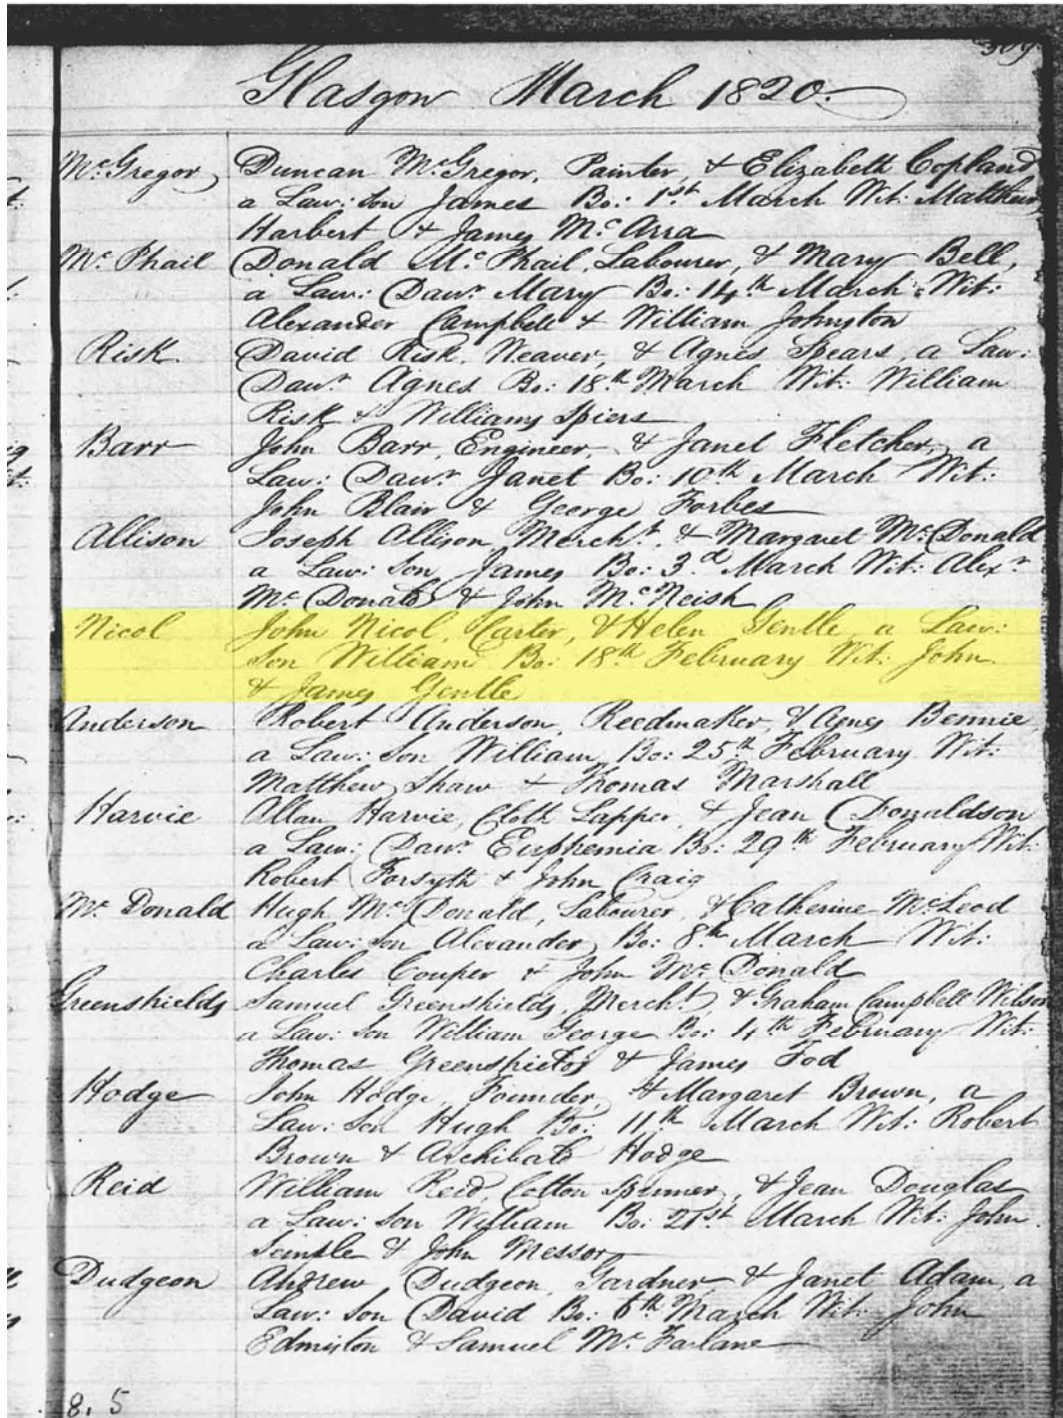 309
Glasgow March 1820.
McGregor Duncan McGregor, Painter, & Elizabeth Copland
a Law: Son James Bo: 1st March Wit: Matthew
Harbert & James McArra
Mc Phail Donald Mc Phail, Labourer, & Mary Bell,
a Law: Dawr Mary Bo: 14th March Wit:
Alexander Campbell & William Johnston
Risk David Risk, Weaver, & Agnes Spears, a Law:
Dawr Agnes Bo: 18th March Wit: William
Risk & Williams Spiers
Barr John Barr, Engineer, & Janet Fletcher, a
Law: Dawr Janet Bo: 10th March Wit:
John Blair & George Forbes
Allison Joseph Allison, Mercht, & Margaret McDonald
a Law: Son James Bo: 3d March Wit: Alexr
McDonald & John McNeish
Nicol John Nicol, Carter, & Helen Gentle, a Law:
Son William Bo: 18th February Wit: John
& James Gentle
Anderson Robert Anderson, Reedmaker, & Agnes Bennie
a Law: Son William Bo: 25th February Wit:
Matthew Shaw & Thomas Marshall
Harvie Allan Harvie, Cloth Lapper, & Jean Donaldson
a Law: Dawr Euphemia Bo: 29th February Wit:
Robert Forsyth & John Craig
Mc Donald Hugh McDonald, Labourer, & Catherine McLeod
a Law: Son Alexander Bo: 8th March Wit:
Charles Couper & John McDonald
Greenshields Samuel Greenshields, Mercht, & Graham Campbell Wilson
a Law: Son William George Bo: 14th February Wit:
Thomas Greenshields & James Tod
Hodge John Hodge, Founder, & Margaret Brown, a
Law: Son Hugh Bo: 11th March Wit: Robert
Brown & Archibald Hodge
Reid William Reid, Cotton Spinner, & Jean Douglas
a Law: Son William Bo: 21st March Wit: John
Semple & John Messor
Dudgeon Andrew Dudgeon, Gardner & Janet Adam, a
Law: Son David Bo: 6th March Wit: John
Edmiston & Samuel McFarlane
8. 5